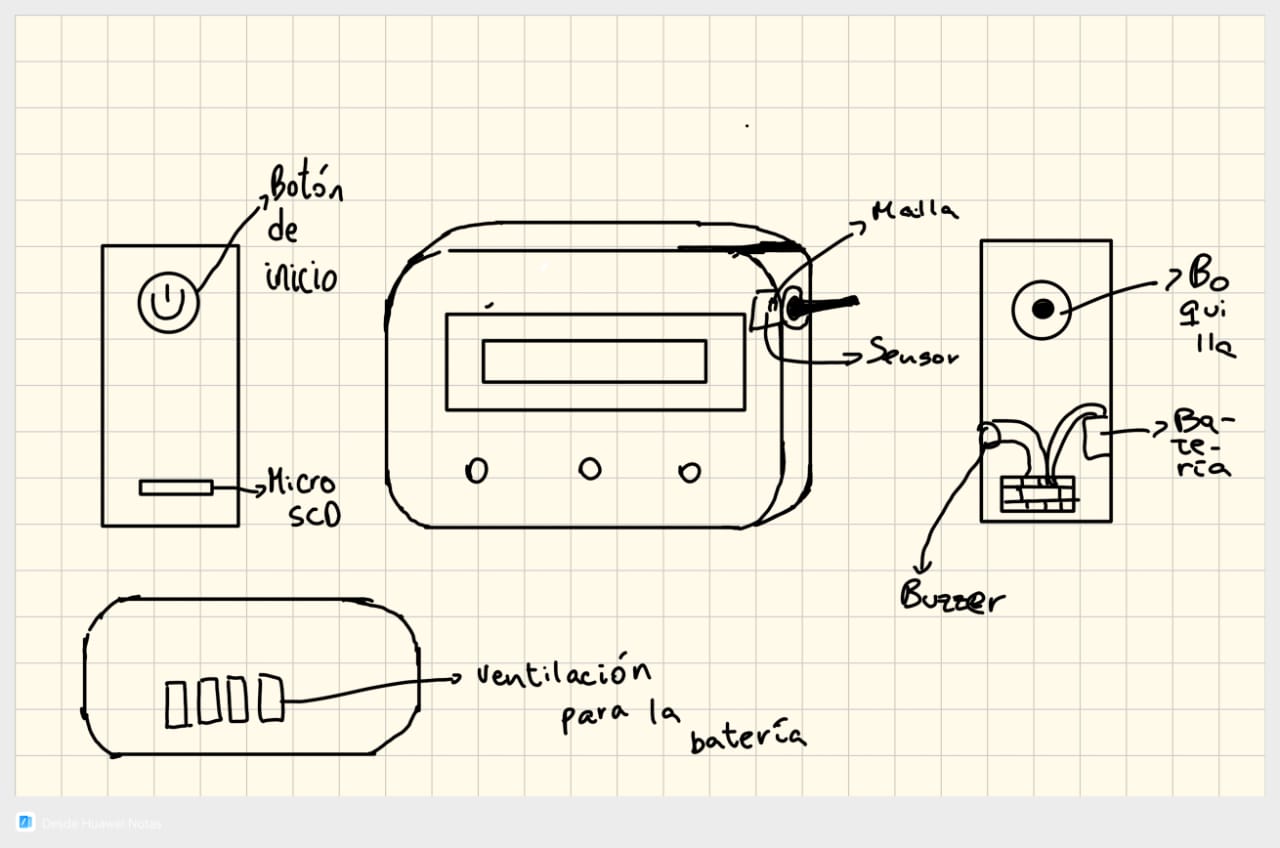 Botón
de
inicio
Micro
SCD
Malla
Sensor
Bo
qui
lla
Ba-
te-
ría
Buzzer
ventilación
para la
batería
Desde Huawei Notas